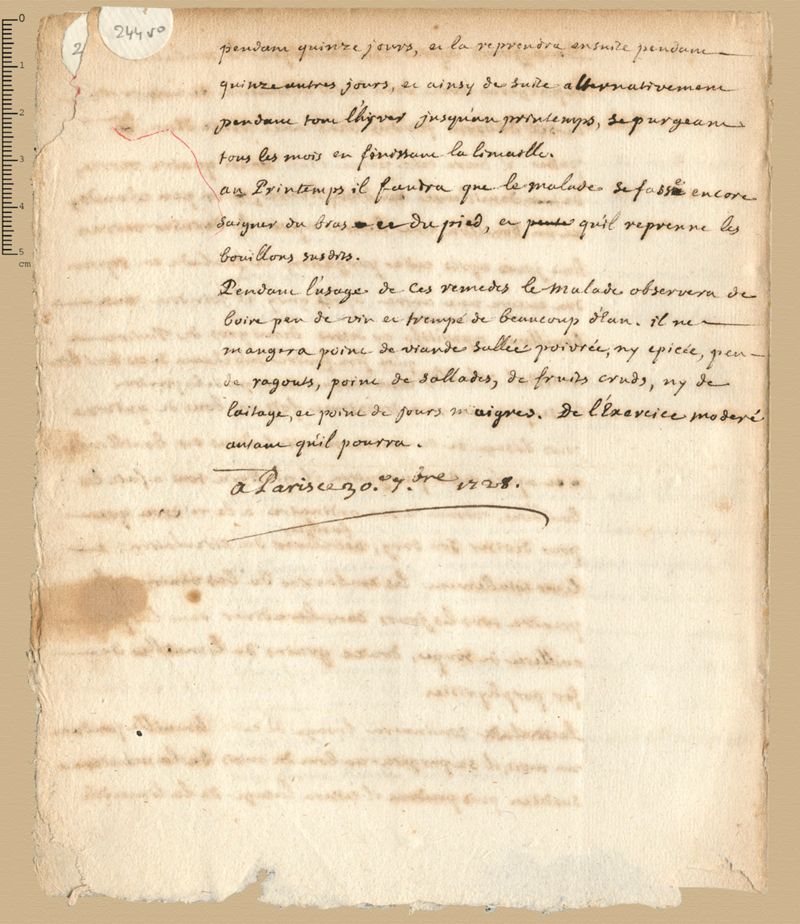 244 vo
2
pendant quinze jours, et la reprendra ensuite pendant
quinze autres jours, et ainsy de suite alternativement
pendant tout l'hyver jusqu'au printemps, se purgeant
tous les mois en finissant la limaille.
au Printemps il faudra que le malade se fasse encore
saigner du bras et du pied, et qu'il reprenne les
bouillons susdits.
Pendant l'usage de ces remedes le Malade observera de
boire peu de vin et trempé de beaucoup d'eau. il ne
mangera point de viande sallée, poivrée, ny epicée, peu
de ragouts, point de sallades, de fruits cruds, ny de
laitage, et point de jours maigres. De l'Exercice moderé
autant qu'il pourra.
a Paris ce 30.e 7.bre 1728.
0
1
2
3
4
5
cm